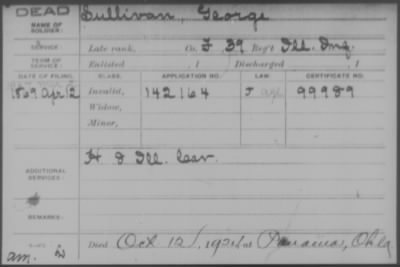 DEAD
NAME OF SOLDIER: Sullivan, George
SERVICE: Late rank, Co. F 39 Reg't Ill. Inf.
TERM OF SERVICE: Enlisted , 1 Discharged , 1
DATE OF FILING. CLASS. APPLICATION NO. LAW. CERTIFICATE NO.
1869 Apr 12 Invalid, 142164 99989
Widow,
Minor,
ADDITIONAL SERVICES: H I Ill. Cav.
REMARKS:
Died Oct 12, at Panama, Okla